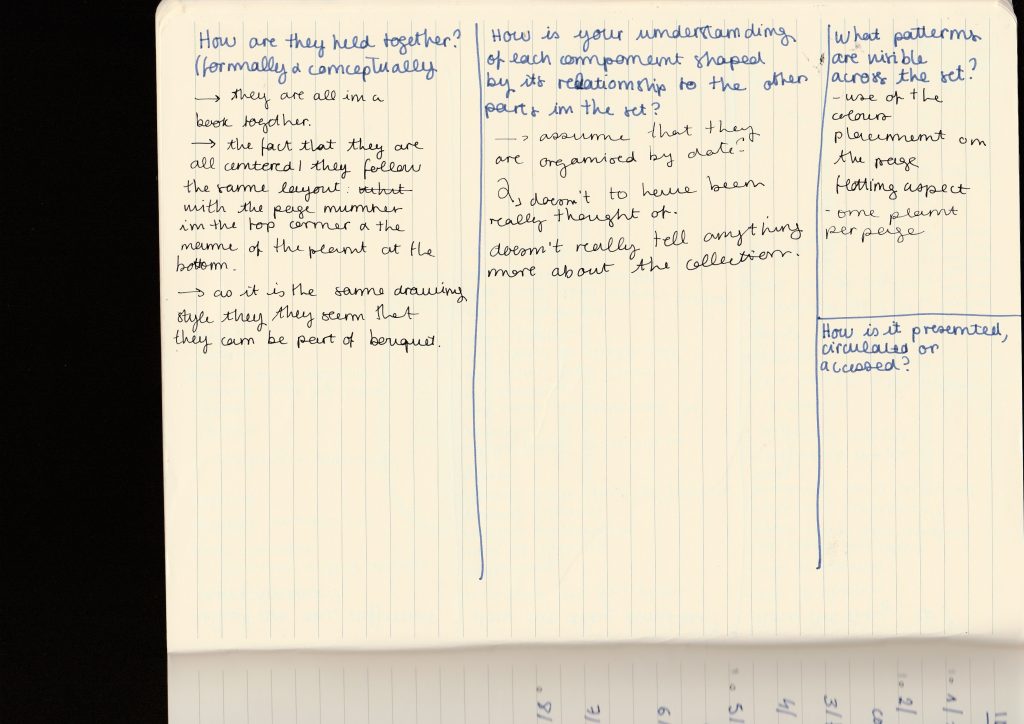 How are they held together?
(formally & conceptually
→ they are all in a
book together.
→ the fact that they are
all centered / they follow
the same layout:
with the page number
in the top corner & the
name of the plant at the
bottom.
→ as it is the same drawing
style they they seem that
they can be part of bouquet.
How is your understanding
of each component shaped
by its relationship to the other
parts in the set?
→ assume that they
are organised by date?
↳ doesn't to have been
really thought of.
doesn't really tell anything
more about the collection.
What patterns
are visible
across the set?
- use of the
colours
placement on
the page
floating aspect
- one plant
per page
How is it presented,
circulated or
accessed?